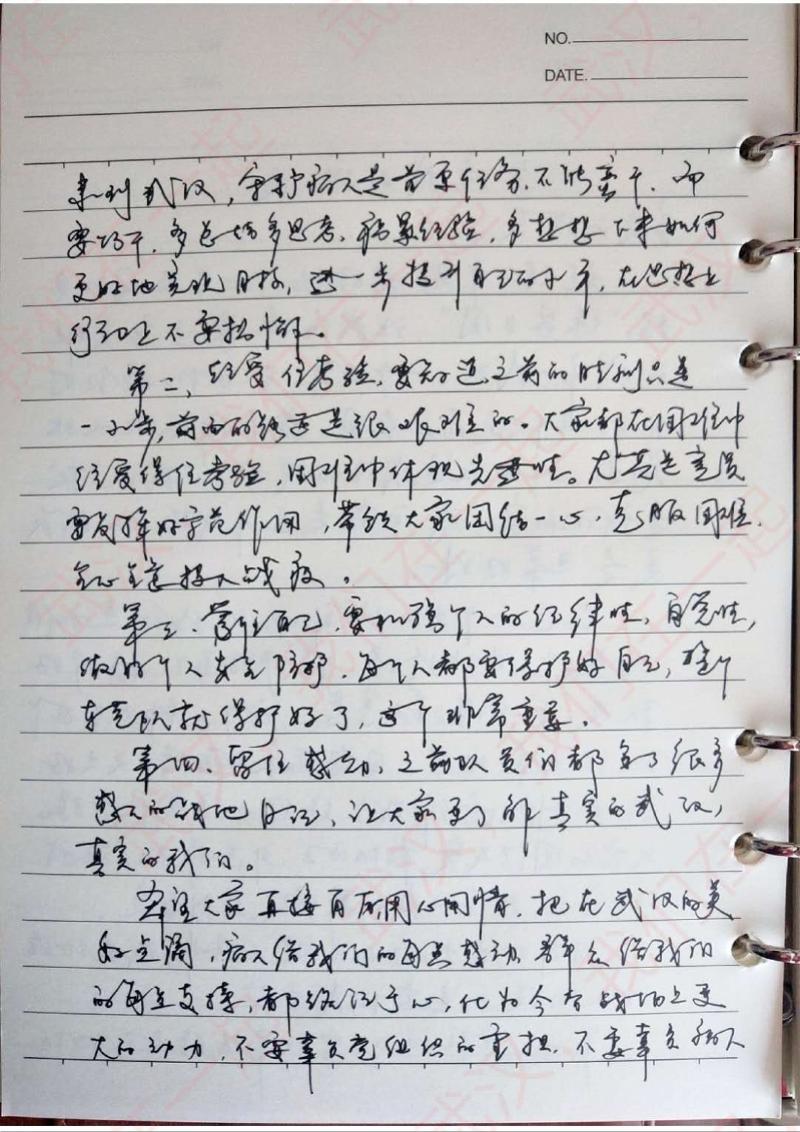 NO.
DATE.
来到武汉，守护病人是首要任务，不能蛮干，而
要巧干，多总结多思考，积累经验，多想想下来如何
更好地实现目标，进一步提升自己的水平，在思想上
行动上不要松懈。
第二、经受住考验，要知道之前的胜利只是
一小步，前面的路还是很艰难的。大家都在困难中
经受得住考验，困难中体现先进性。尤其是党员
要发挥好示范作用，带领大家团结一心，克服困难，
全心全意投入战疫。
第三、管住自己，要加强个人的纪律性，自觉性，
做好个人安全防护，每个人都要保护好自己，整个
车队就保护好了，这个非常重要。
第四、留住感动，之前队员们都写了很多
感人的战地日记，让大家看到了真实的武汉，
真实的我们。
希望大家再接再厉用心用情，把在武汉的美
好点滴，病人给我们的每点感动，群众给我们
的每点支持，都铭记于心，化为今后战场上更
大的动力，不要辜负党组织的重担，不要辜负病人
武汉，我们在一起